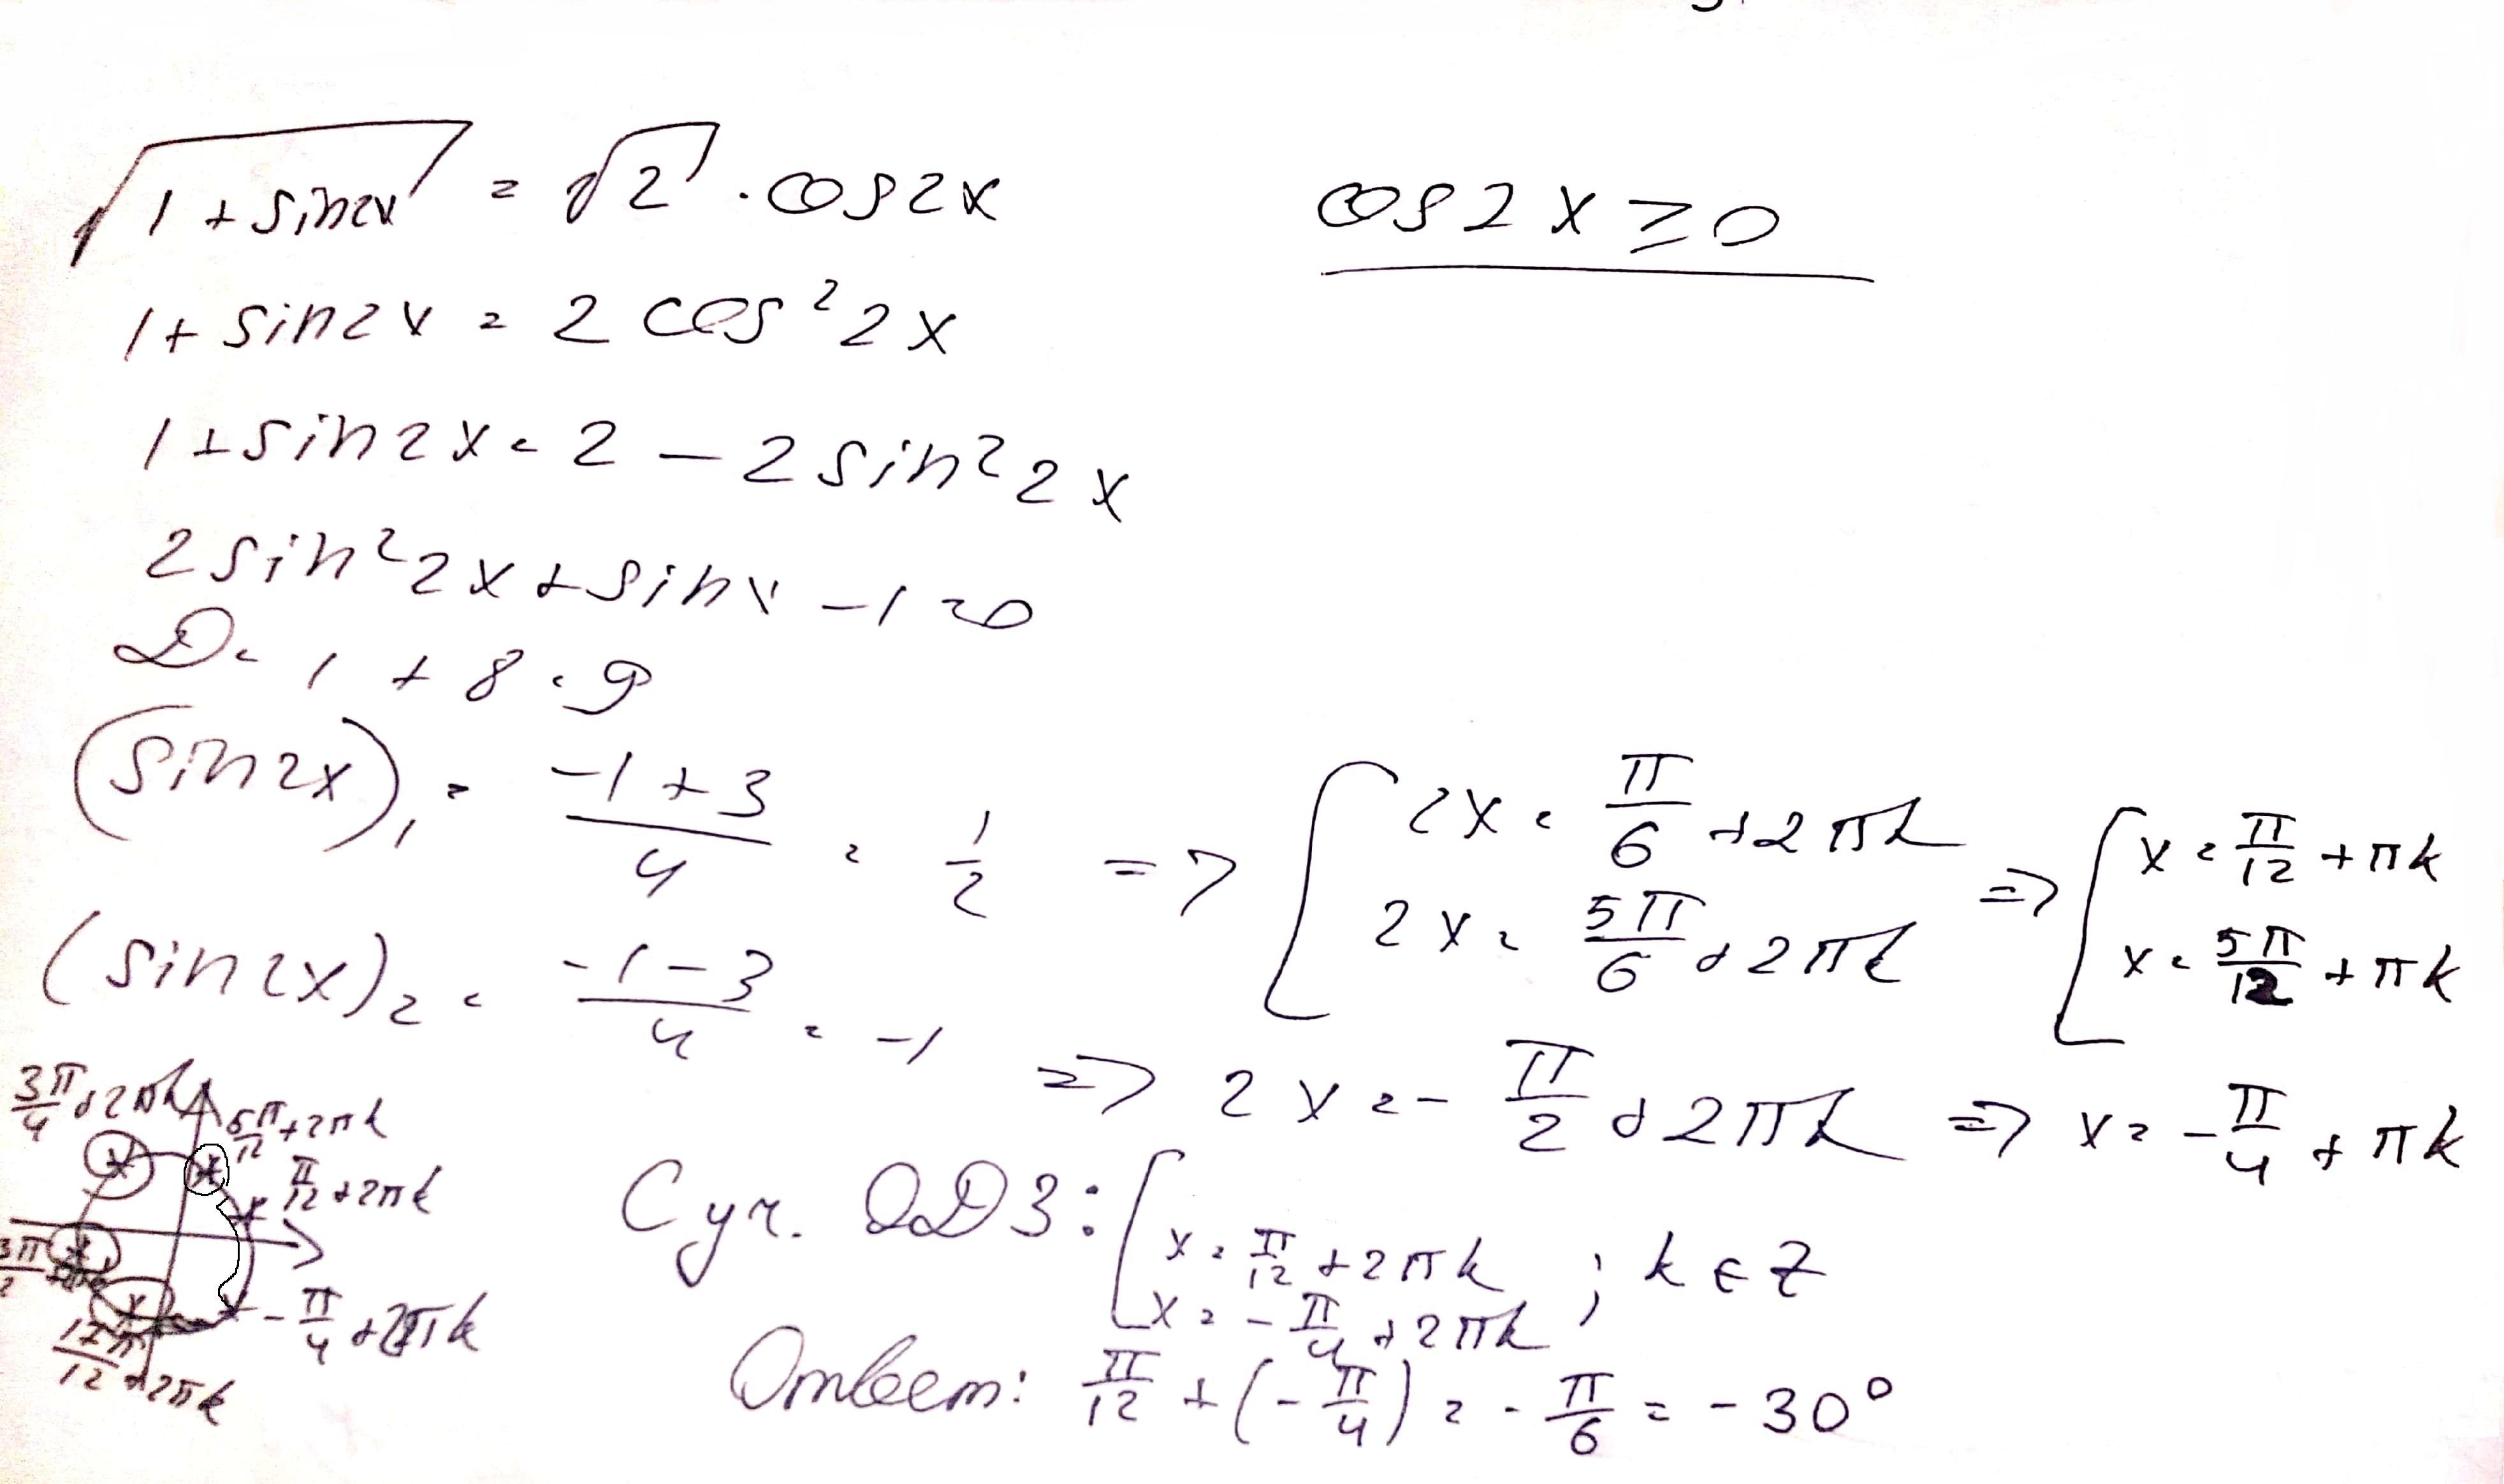 √(1 + sin2x) = √2 · cos2x cos2x ≥ 0
1 + sin2x = 2 cos² 2x
1 + sin2x = 2 − 2 sin² 2x
2 sin² 2x + sinx − 1 = 0
D = 1 + 8 = 9
(sin2x)₁ = (−1 + 3)/4 = 1/2 => [ 2x = π/6 + 2πk => [ x = π/12 + πk
2x = 5π/6 + 2πk x = 5π/12 + πk
(sin2x)₂ = (−1 − 3)/4 = −1 => 2x = −π/2 + 2πk => x = −π/4 + πk
3π/4 + 2πk
5π/12 + 2πk
π/12 + 2πk
−π/4 + 2πk
+ 2πk
ОДЗ: [ x = π/12 + 2πk ; k ∈ Z
x = −π/4 + 2πk
Ответ: π/12 + (−π/4) = −π/6 = −30°